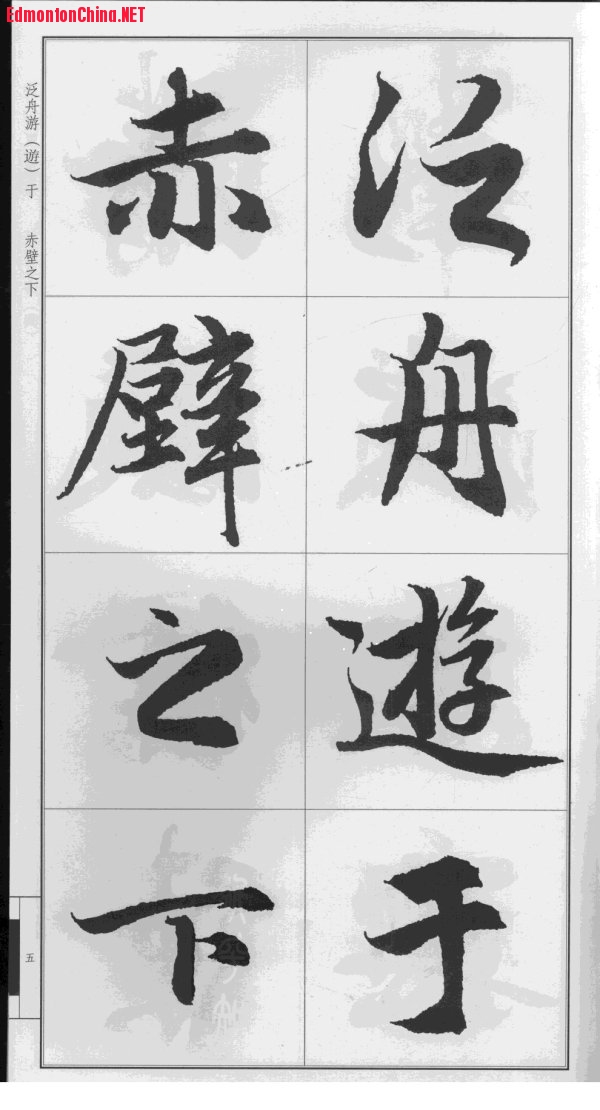 EdmontonChina.NET
泛舟遊于
赤壁之下
泛舟游（遊）于　赤壁之下
五